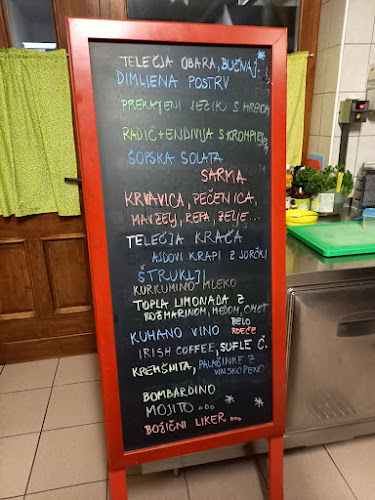 TELEČJA OBARA, BUČNA J.
DIMLJENA POSTRV
PREKAJENI JEZIK S HRENOM
RADIČ+ENDIVIJA S KROMPIRJ.
ŠOPSKA SOLATA
SARMA
KRVAVICA, PEČENICA,
MAVŽELJ, REPA, ZELJE...
TELEČJA KRAČA
AJDOVI KRAPI Z JURČKI
ŠTRUKLJI
KURKUMINO MLEKO
TOPLA LIMONADA Z
ROŽMARINOM, MEDOM, CIMET
KUHANO VINO BELO
RDEČE
IRISH COFFEE, SUFLE Č.
KREMŠNITA, PALAČINKE Z
VINSKO PENO
BOMBARDINO
MOJITO...
BOŽIČNI LIKER...